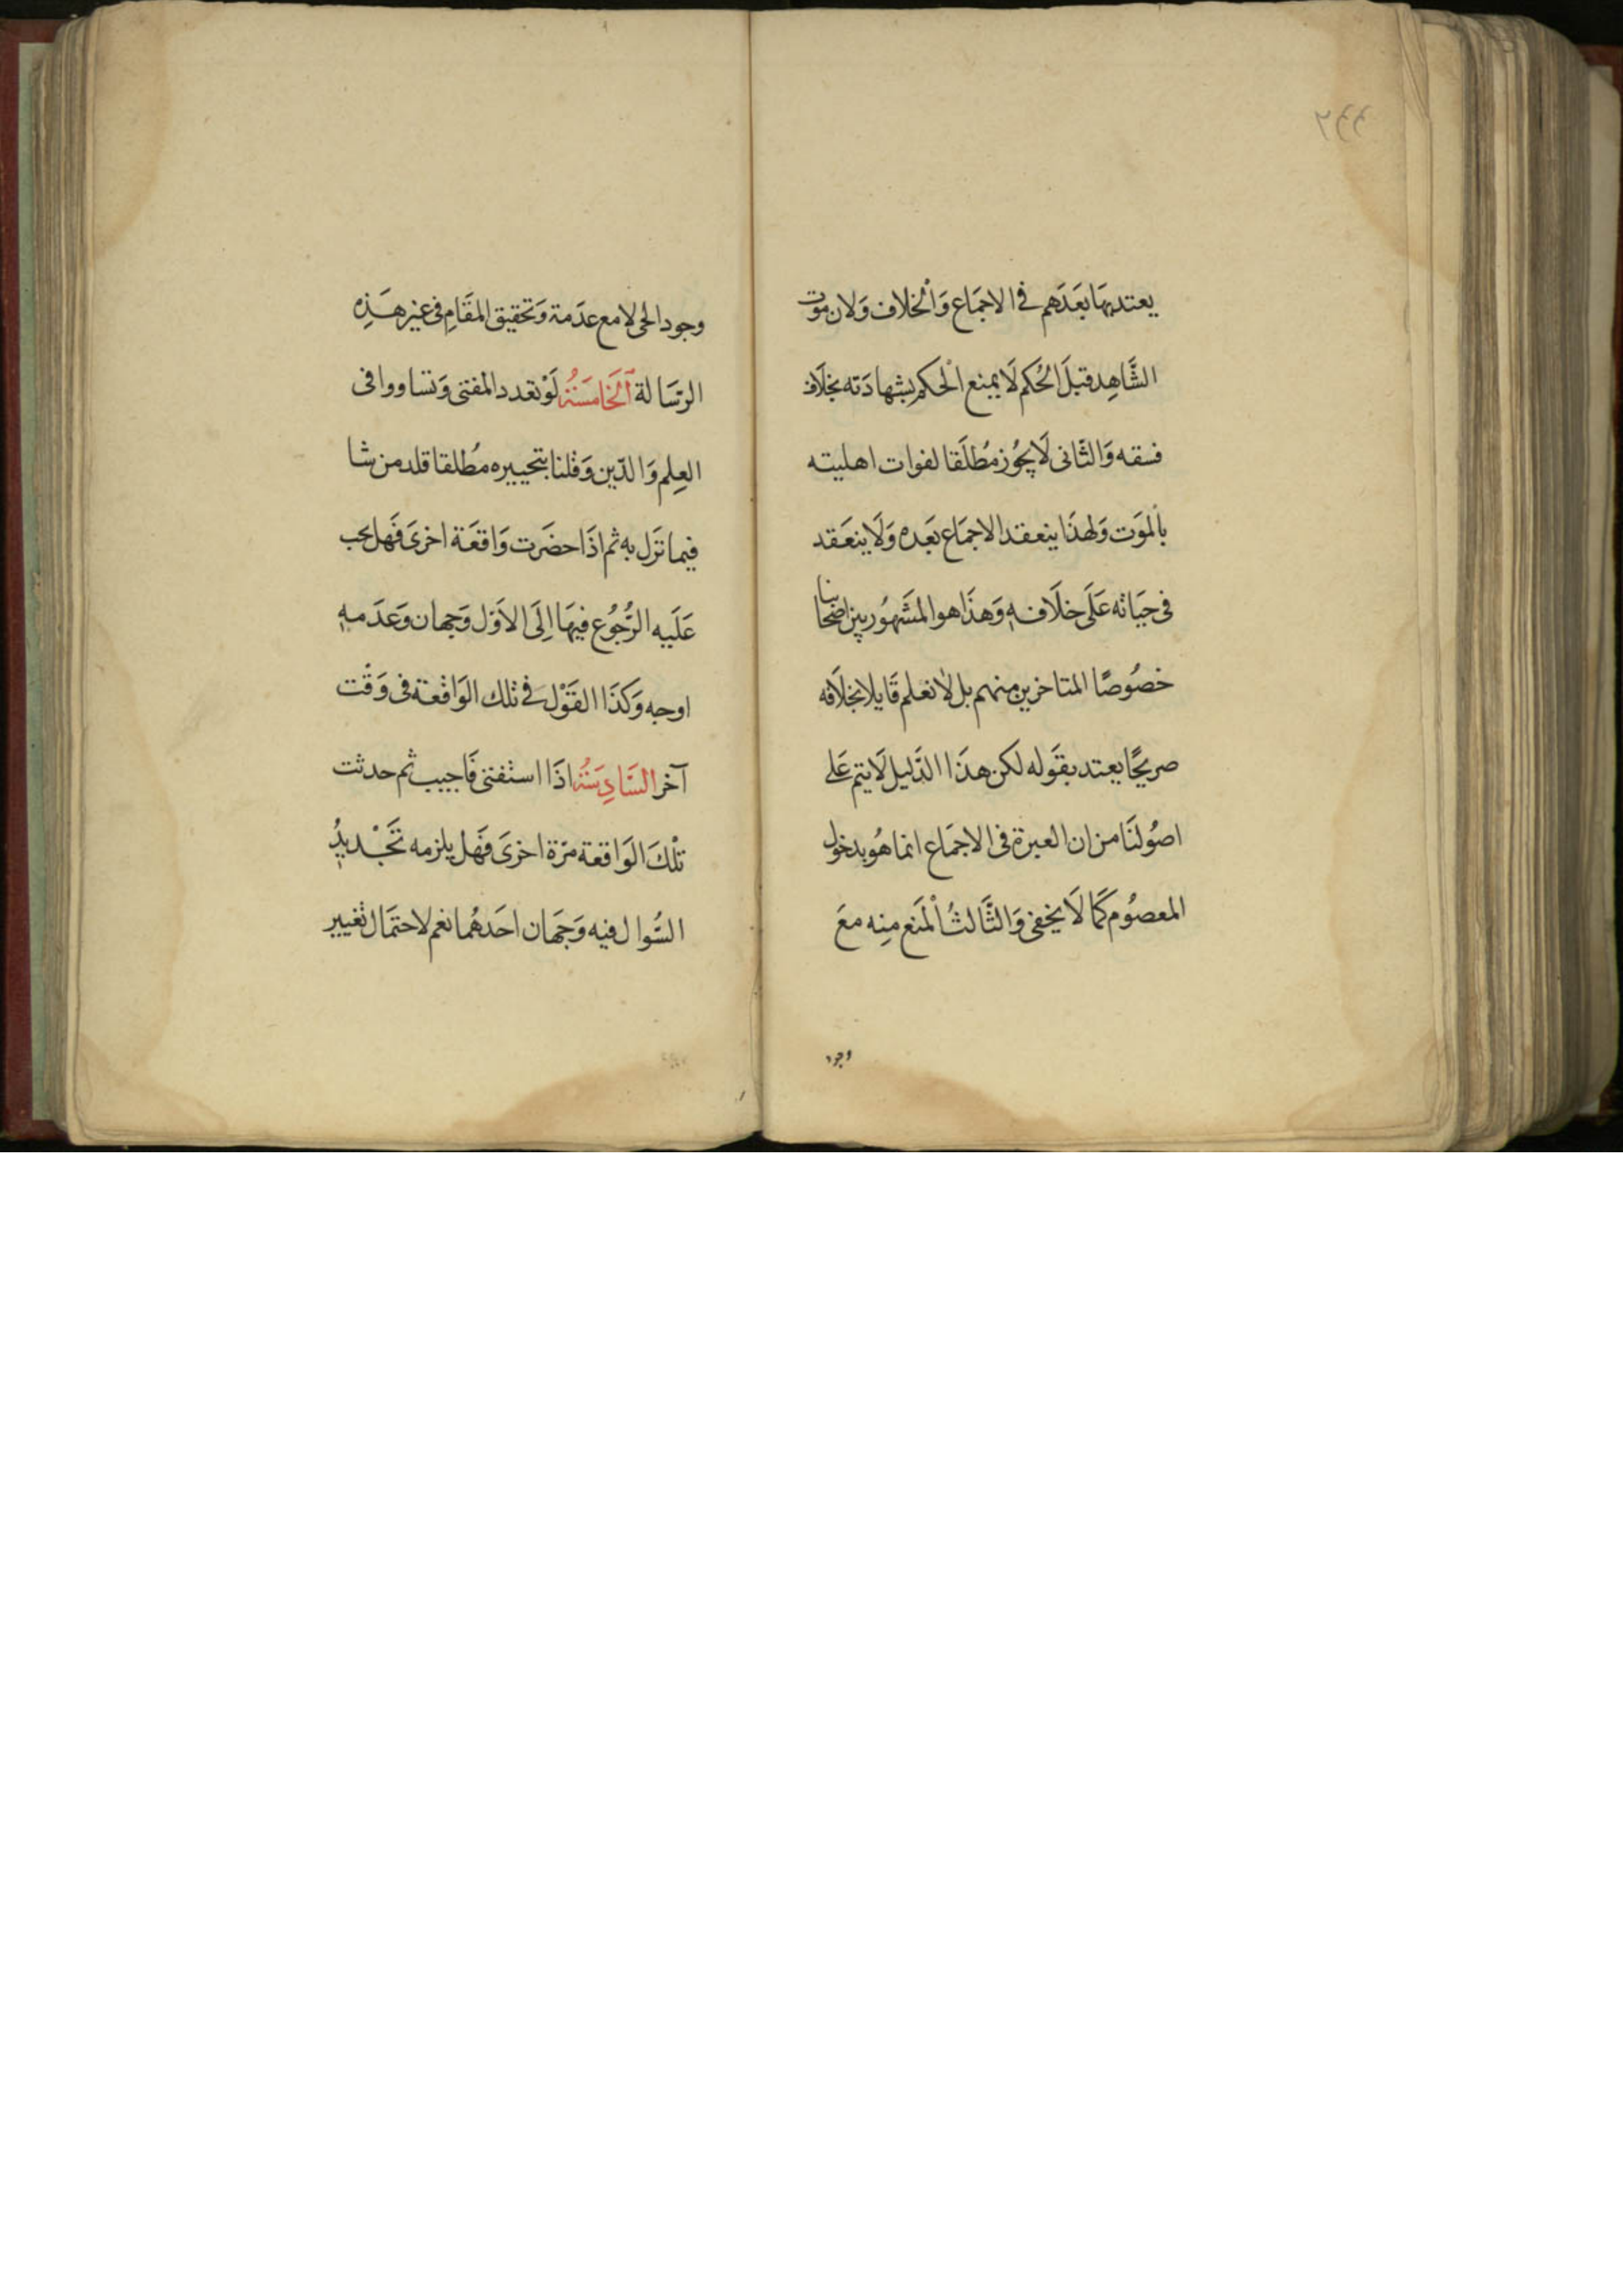 يعتد بها بَعَدَهم في الاجمَاع وَالْخلاف وَلان موت
الشَّاهِد قبلَ الحُكم لَا يمنع الْحكم بشهادَته بخلَاف
فسقه وَالثَّانى لَا يجُوز مُطلَقا لفوات اهليته
بالموَت وَلهذَا ينعقد الاجمَاع بَعَده وَلَا ينعَقد
فى حيَاته عَلَى خلَافه وَهذَا هو المشَهُور بين اصحابنا
خصُوصًا المتاخرين منهم بل لا نعلم قَايلا بخلَافه
صريحًا يعتد بقَوله لكن هذَا الدَّليل لَا يتم عَلى
اصُولنَا من ان العبرة فى الاجمَاع انما هُو بدخول
المعصُوم كَمَا لَا يخفى وَالثَّالثُ الْمَنع مِنه معَ
وجود
وجود الحى لا مع عدَمة وَتحقيق المقَامِ فى غير هَذِه
الرسَالة اَلخَامسَةُ لَوْ تعدد المفتى وَتساووا فى
العِلم وَالدّين وَقلنا بتخييره مُطلقا قلد من شا
فيما نزَل به ثم اذَا حضَرت وَاقعَة اخرىَ فَهل يجب
عَلَيه الرُّجُوع فيهَا اِلَى الاَوّل وَجهان وَعَدَمه
اوجه وَكَذَا القَوْل فى تلك الوَاقعة فى وَقْت
آخر السَّادِسَةُ اذَا استفتى فَاجيب ثم حدثت
تلْكَ الوَاقعة مرّة اخرىَ فَهَل يلزمه تَجْديدُ
السُّوال فيه وَجَهان احَدهُما نعم لاحتمَال تغيير